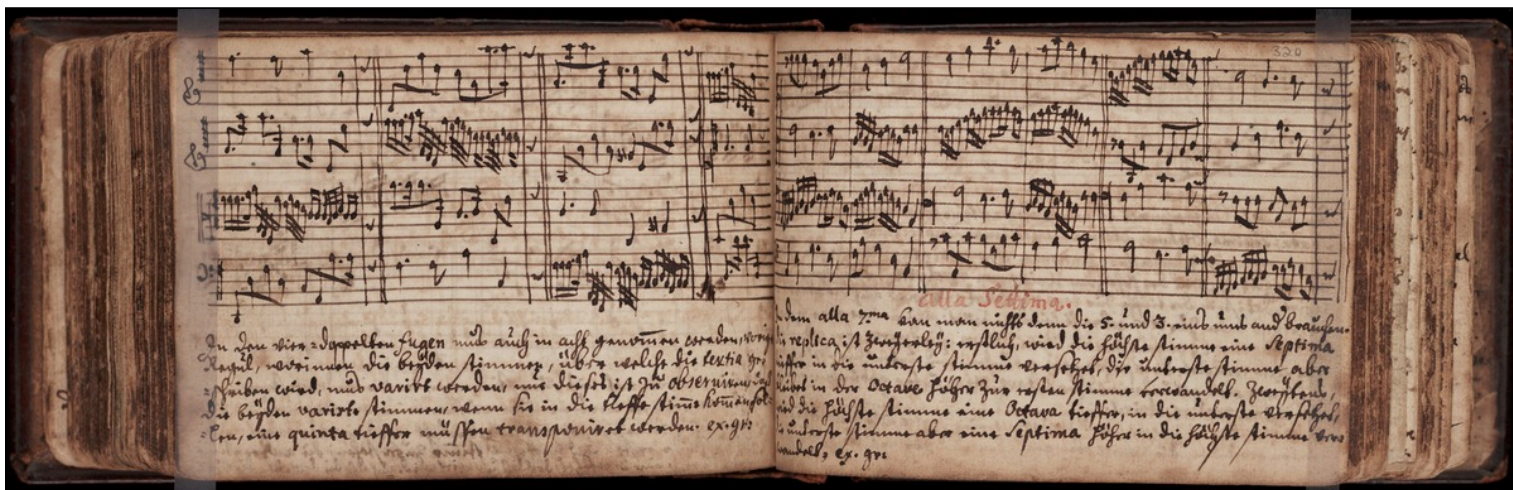 320
In den vier-doppelten fugen muß auch in acht genommen werden, vorige
Regul, worinnen die beyden stimmen, über welche die tertia ge-
-schrieben wird, muß varirt werden, nur dieses ist zu observiren, daß
die beyden varirte stimmen, wenn sie in die tieffe stimme kommen sol-
-len, eine quinta tieffer müssen transponiret werden. ex. gr:
alla Settima.
In dem alla 7.ma kan man nichts denn die 5. und 3. eins ums and brauchen.
die replica ist zweyerley: erstlich, wird die höchste stimme eine Septima
tieffer in die unterste stimme versetzet, die unterste stimme aber
bleibet in der Octave höher zur ersten stimme verwandelt. Zweytens,
wird die höchste stimme eine Octava tieffer, in die unterste versetzet,
die unterste stimme aber eine Septima höher in die höchste stimme ver-
wandelt, ex. gr: